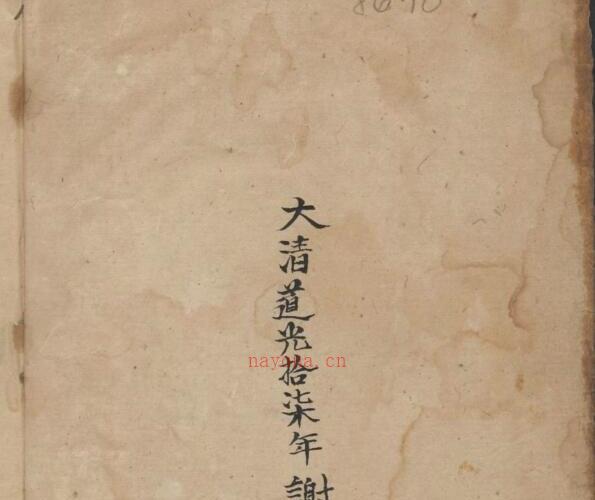 大清道光拾柒年 謝
nayona.cn